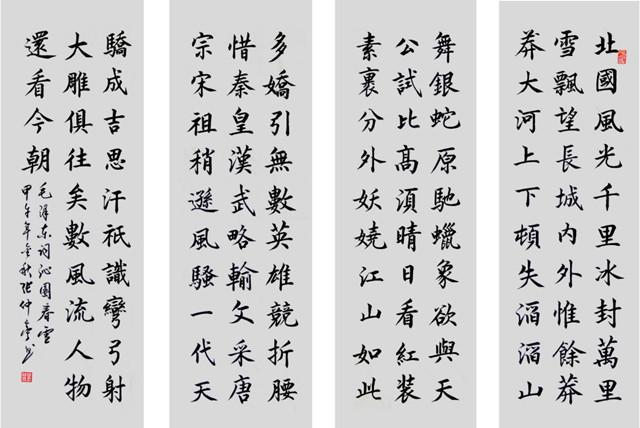 北國風光千里冰封萬里
雪飄望長城内外惟餘莽
莽大河上下頓失滔滔山
舞銀蛇原馳蠟象欲與天
公試比髙湏晴日看紅装
素裹分外妖嬈江山如此
多嬌引無數英雄競折腰
惜秦皇漢武略輸文采唐
宗宋祖稍遜風騷一代天
驕成吉思汗祇識彎弓射
大雕俱往矣數風流人物
還看今朝
毛澤东词沁園春雪
甲午年金秋張仲書